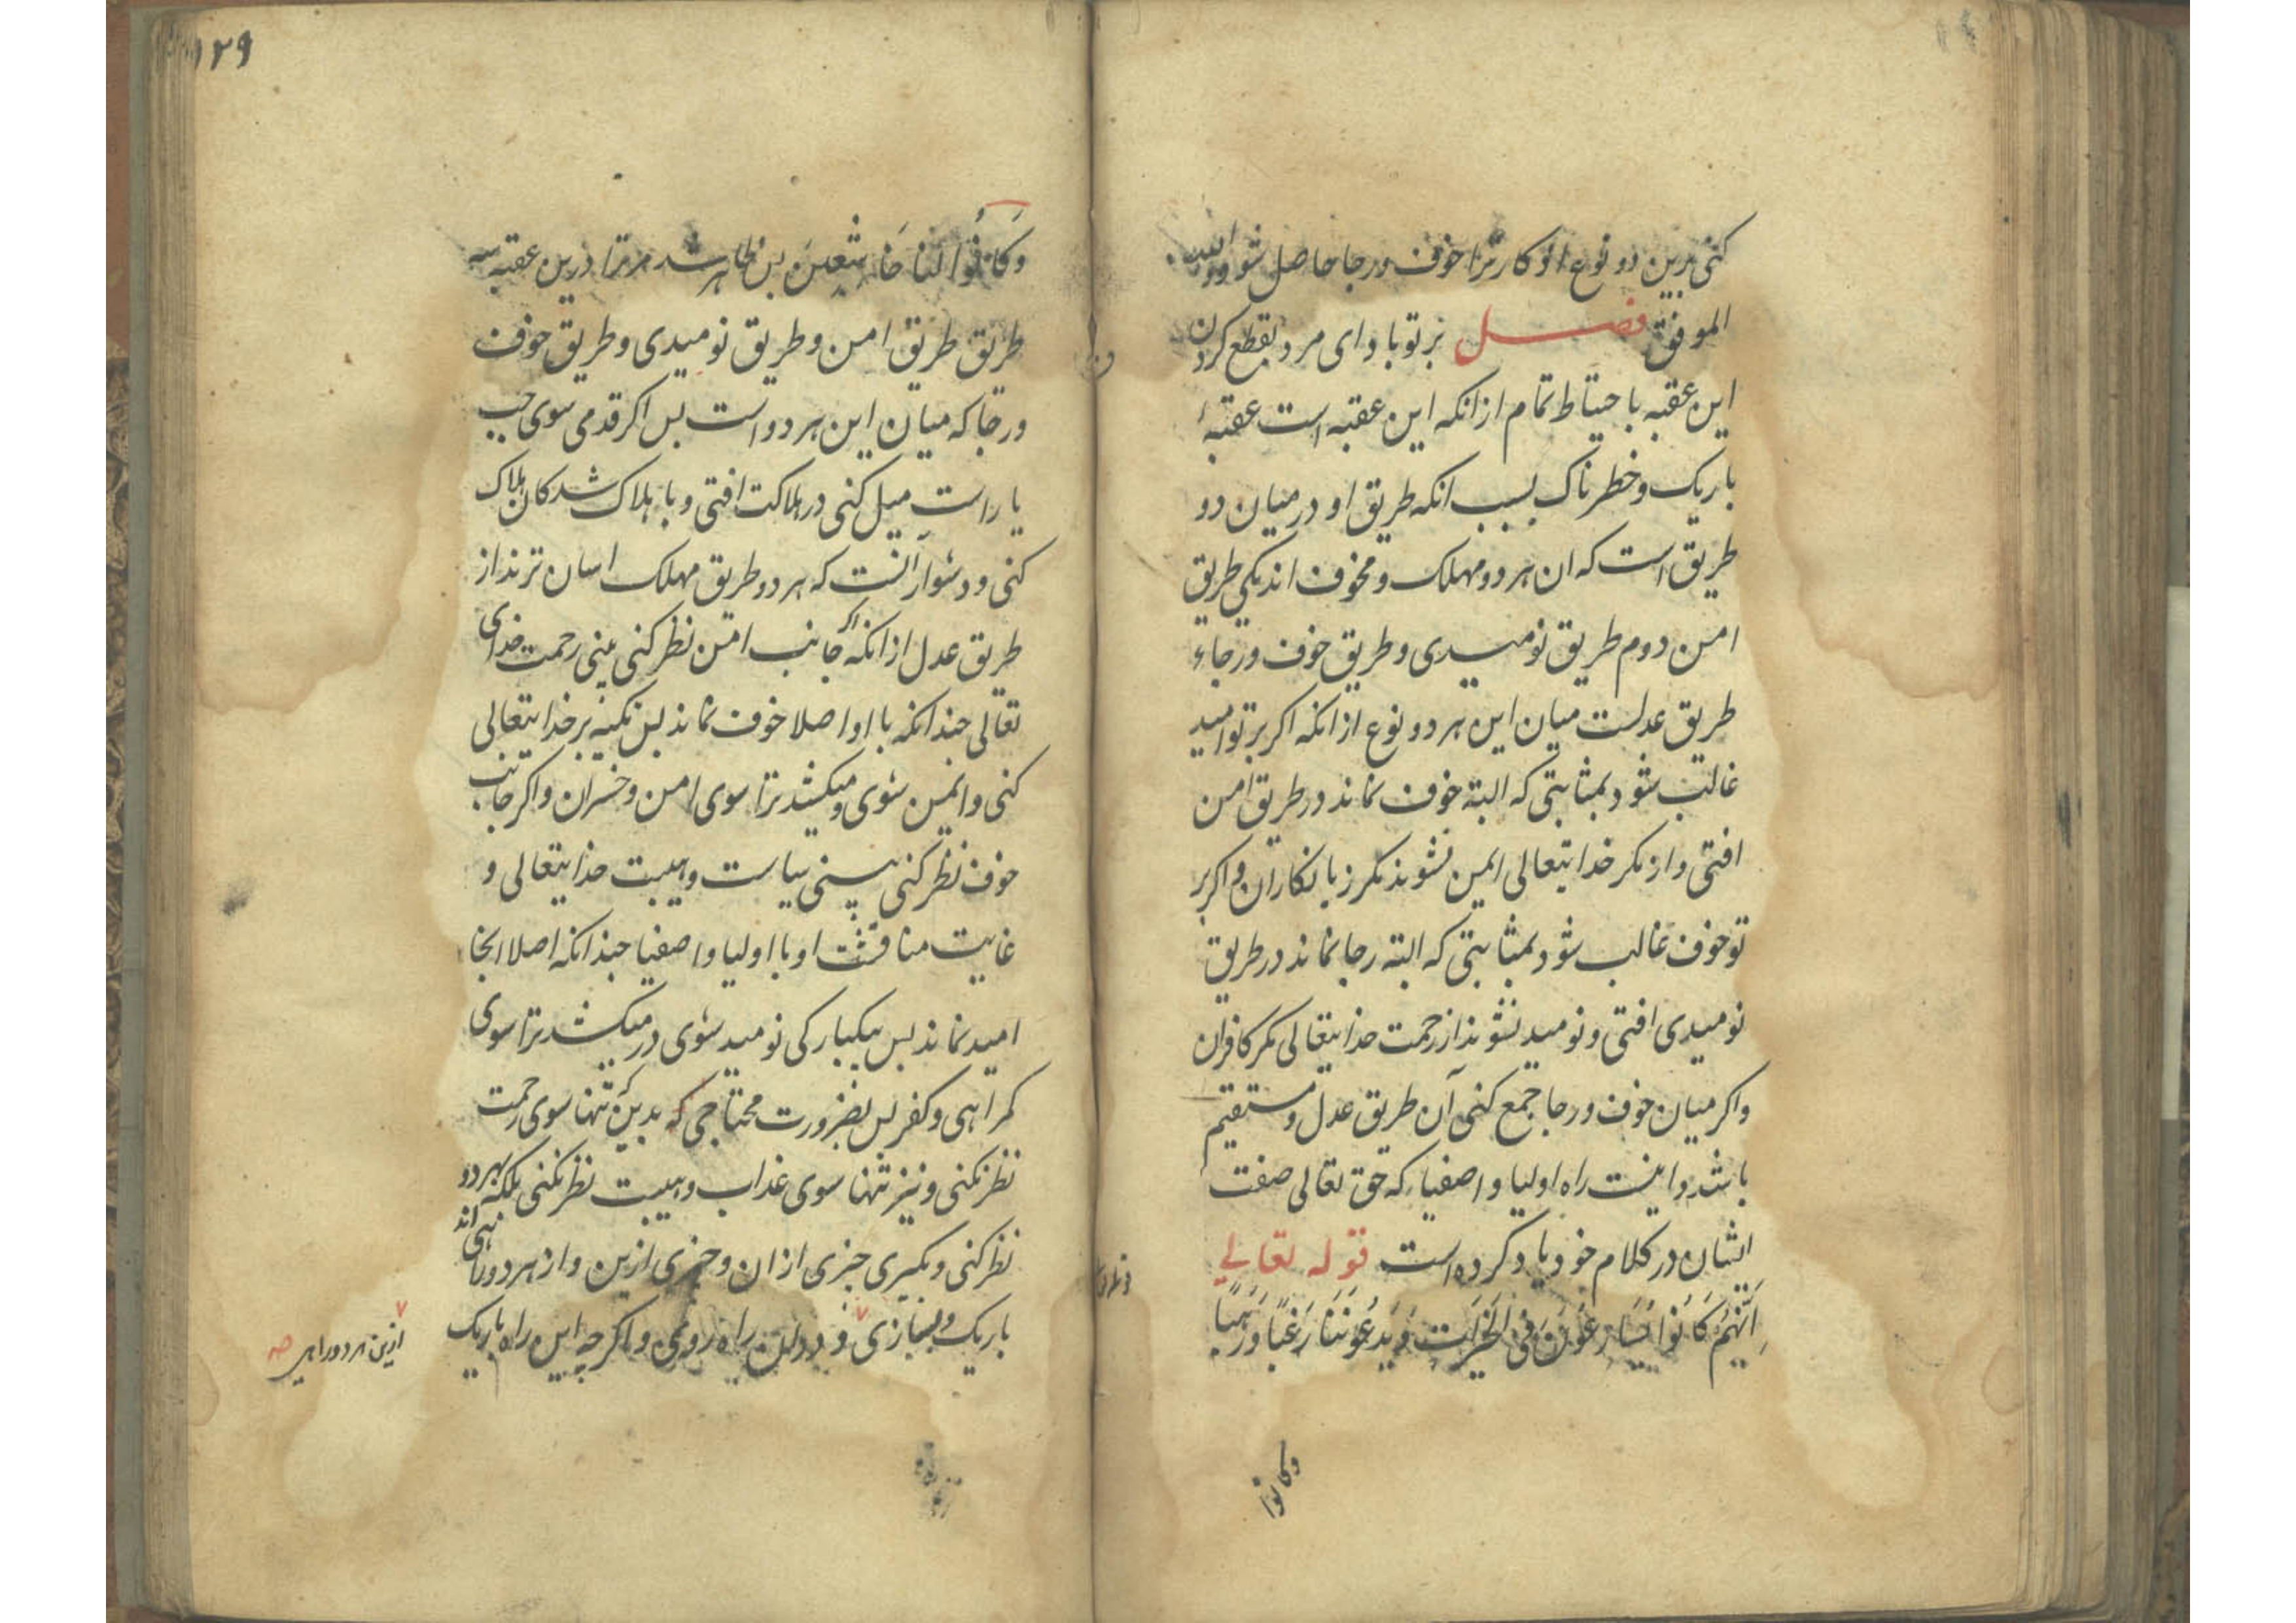 کنی بدین دو نوع اذکار ترا خوف و رجا حاصل شود والله
الموفق فصل بر تو باد ای مرد بقطع کردن
این عقبه باحتیاط تمام ازانکه این عقبه است عقبهٔ
باریک و خطرناک بسبب انکه طریق او در میان دو
طریق است که ان هر دو مهلک و مخوف اند یکی طریق
امن دوم طریق نومیدی و طریق خوف و رجاء
طریق عدلست میان این هر دو نوع ازانکه اکر بر تو امید
غالب شود بمثابتی که البته خوف نماند در طریق امن
افتی و از مکر خدایتعالی ایمن نشوند مکر زیانکاران و اکر بر
تو خوف غالب شود بمثابتی که البته رجا نماند در طریق
نومیدی افتی و نومید نشوند از رحمت خدایتعالی مکر کافران
واکر میان خوف و رجا جمع کنی آن طریق عدل و مستقیم
باشد و اینست راه اولیا و اصفیا که حق تعالی صفت
ایشان در کلام خود یاد کرده است قوله تعالی
اِنَّهُمْ كَانُوا يُسَارِعُونَ فِی الخَيْرَاتِ وَيَدْعُونَنَا رَغَبًا وَرَهَبًا
وکانوا
۱۲۹
وَكَانُوا لَنَا خَاشِعِينَ بس ظاهر شد مر ترا درین عقبه سه
طریق طریق امن و طریق نومیدی و طریق خوف
و رجا که میان این هر دو است بس اکر قدمی سوی جب
یا راست میل کنی در هلاکت افتی و با هلاک شدکان هلاک
کنی و دشوار آنست که هر دو طریق مهلک اسان ترند از
طریق عدل ازانکه اکر جانب امن نظر کنی بینی رحمت خدای
تعالی جندانکه با او اصلا خوف نماند بس تکیه بر خدایتعالی
کنی و ایمن شوی و میکشد ترا سوی امن و خسران و اکر جانب
خوف نظر کنی بینی سیاست و هیبت خدایتعالی و
غایت مناقشت او با اولیا و اصفیا جندانکه اصلا انجا
امید نماند بس بیکبارکی نومید شوی در میکشد ترا سوی
کمراهی و کفر بس بضرورت محتاجی که بدینکه تنها سوی رحمت
نظر نکنی و نیز تنها سوی عذاب و هیبت نظر نکنی بلکه بهر دو
نظر کنی و بکیری جیزی ازان و جیزی ازین و از هر دو راهی اند
باریک و بسازی و در این راه روی و اکرچه این راه باریک
ازین هر دو راهی صه